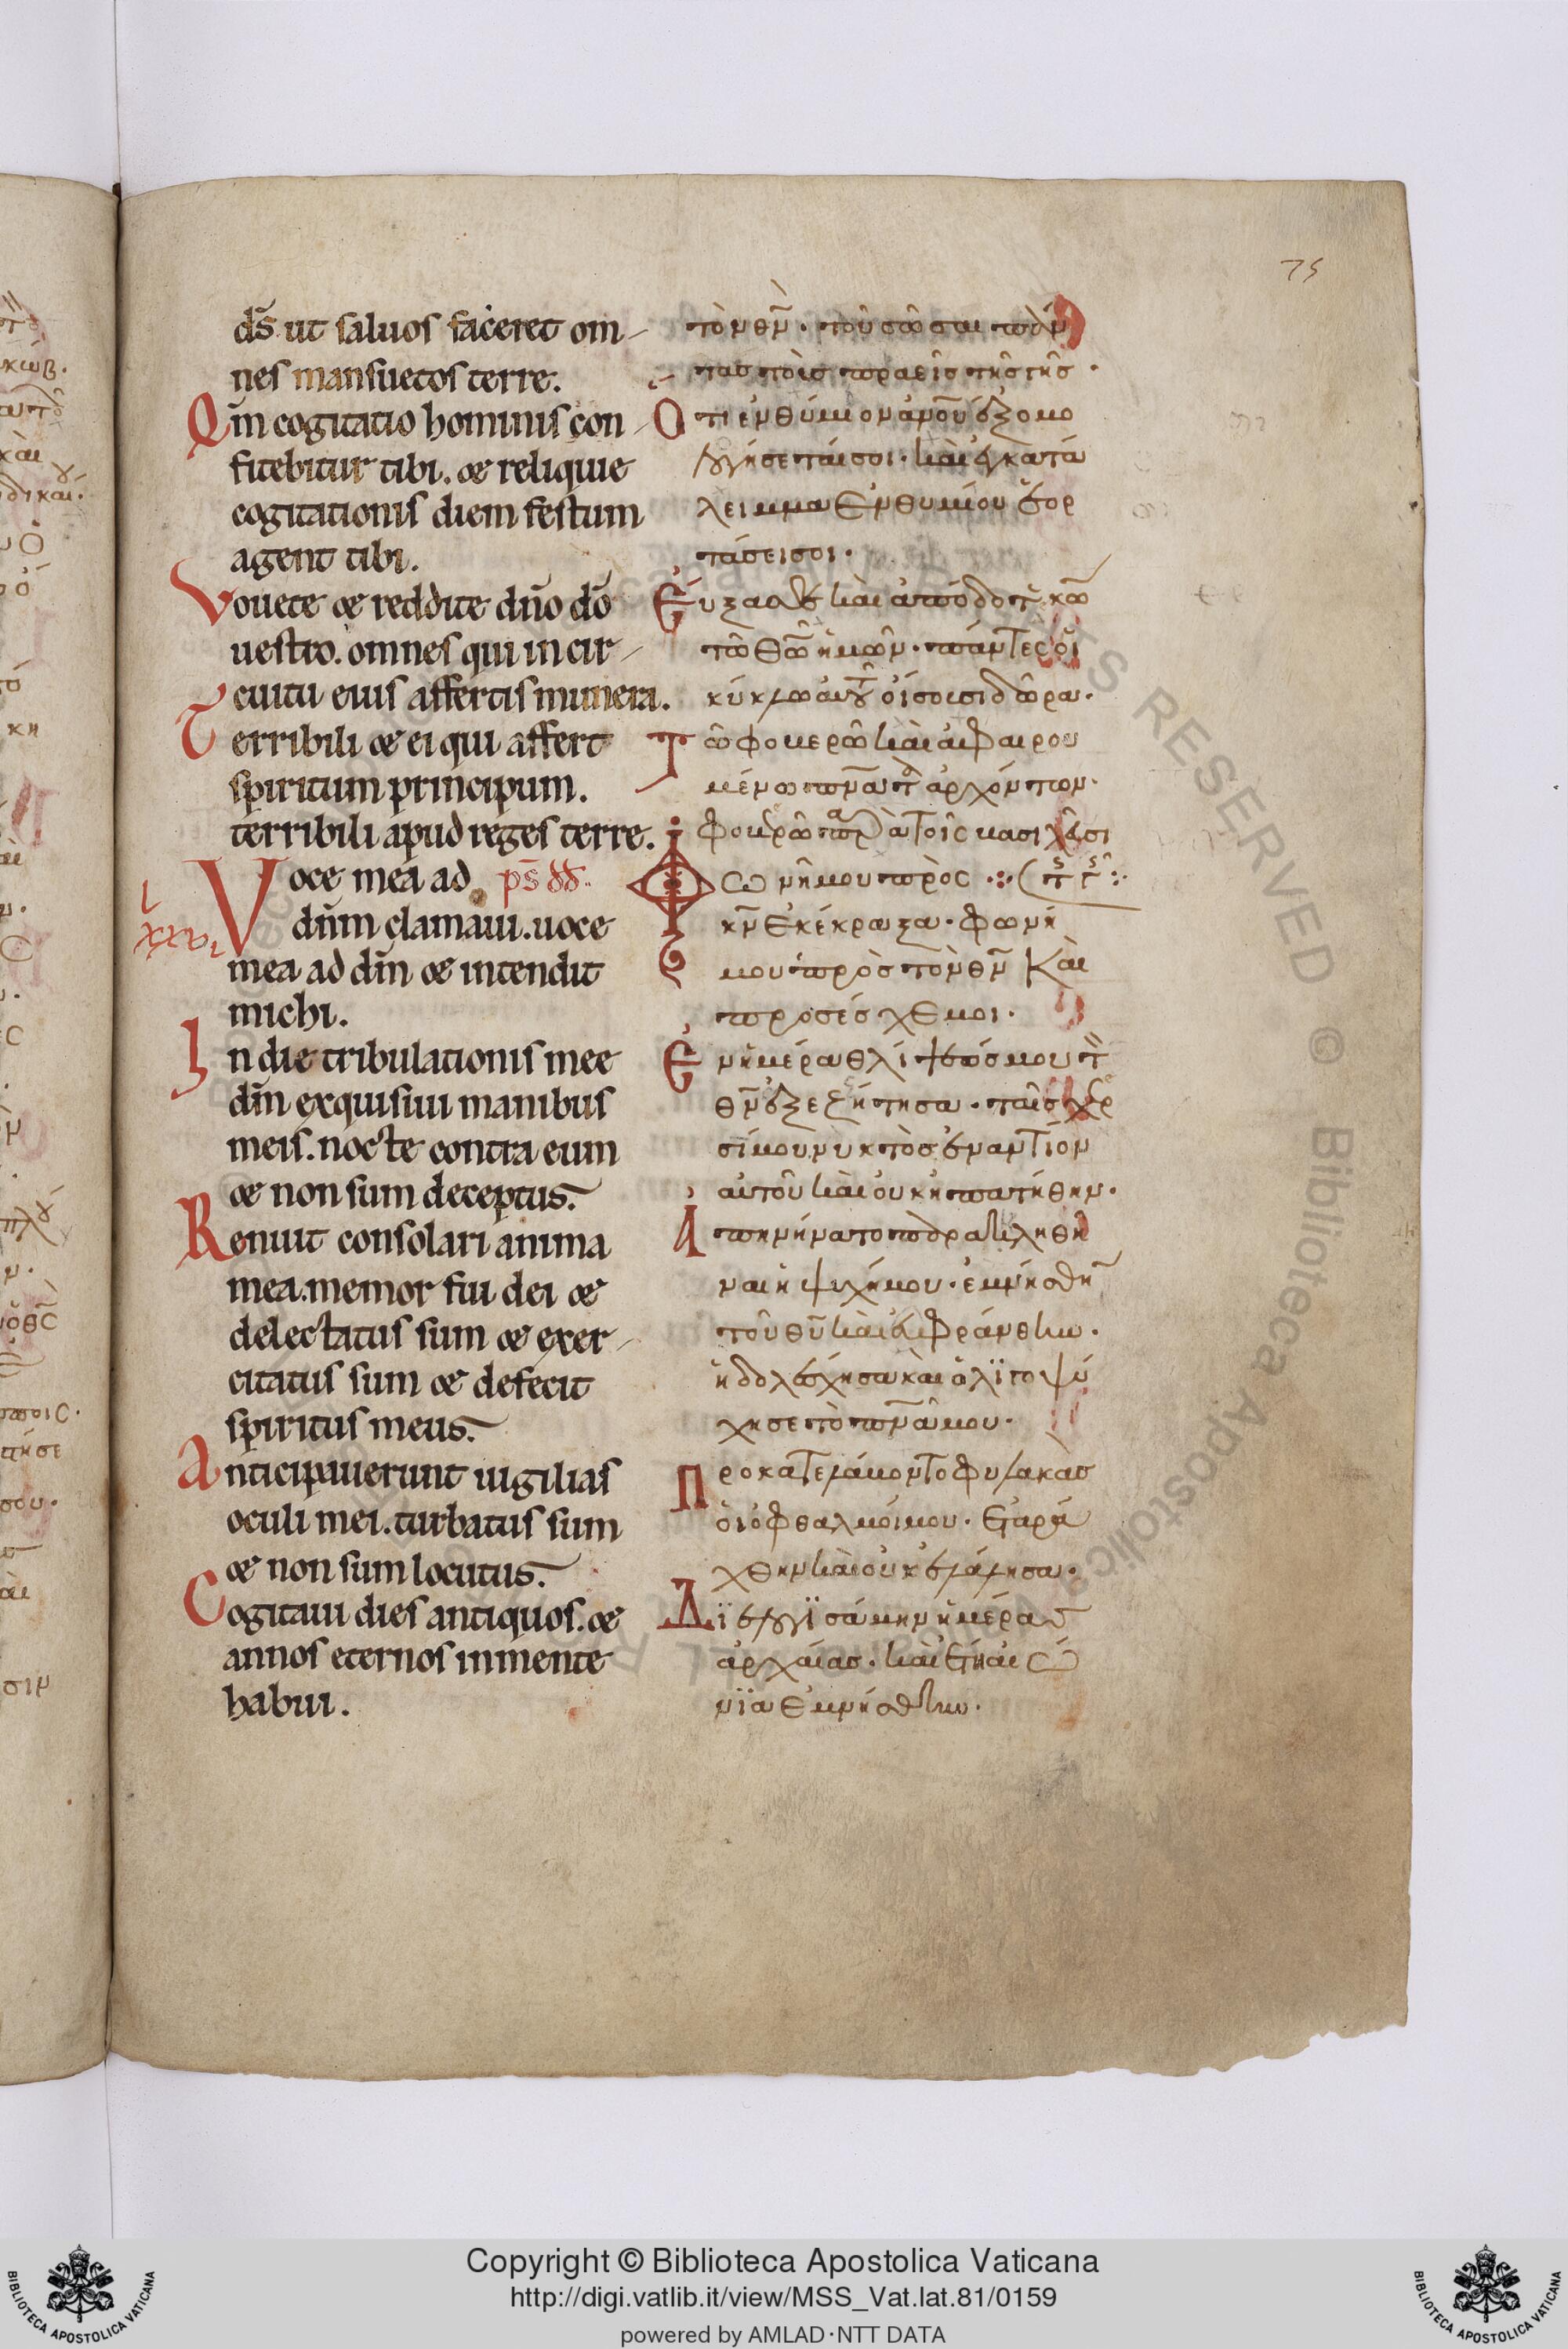 75
ds̄ ut saluos faceret om-
nes mansuetos terre.
Qm̄ cogitatio hominis con-
fitebitur tibi. & reliquie
cogitationis diem festum
agent tibi.
Vouete & reddite dn̄o dō
uestro. omnes qui in cir-
cuitu eius affertis munera.
Terribili & ei qui affert
spiritum principum.
terribili apud reges terre.
Voce mea ad ps̄ dd̄.
lxxvi
dn̄m clamaui. uoce
mea ad dm̄ & intendit
michi.
In die tribulationis mee
dm̄ exquisiui manibus
meis. nocte contra eum
& non sum deceptus.
Renuit consolari anima
mea. memor fui dei &
delectatus sum & exer-
citatus sum & defecit
spiritus meus.
Anticipauerunt uigilias
oculi mei. turbatus sum
& non sum locutus.
Cogitaui dies antiquos. &
annos eternos in mente
habui.
τὸν θν̄. τοῦ σῶσαι πάν
τασ τοὺσ πραεῖσ τῆσ γῆσ.
Ὅτι ἐνθύμιον ἀνοῦ ἐξομο
λογήσεταί σοι. καὶ ἐγκατά
λειμμα ἐνθυμίου ἑορ
τάσει σοι.
Εὔξασθε καὶ ἀπόδοτε κω̄
τῶ θω̄ ἡμῶν. πάντες οἱ
κύκλω αὐτοῦ οἴσουσι δῶρα.
Τῶ φοβερῶ καὶ ἀφαιρου
μένω πνᾱτα ἀρχόντων.
φοβερῶ παρὰ τοῖς βασιλεῦσι
Φωνῆ μου πρὸς τῆς γῆς
κν̄ ἐκέκραξα. φωνῆ
μου πρὸσ τὸν θν̄ καὶ
προσέσχε μοι.
Ἐν ἡμέρα θλίψεώσ μου τὸν
θν̄ ἐξεζήτησα. ταῖσ χερ
σί μου νυκτὸσ ἐναντίον
αὐτοῦ καὶ οὐκ ἠπατήθην.
Ἀπηνήνατο παρακληθῆ
ναι ἡ ψυχή μου. ἐμνήσθην
τοῦ θῡ καὶ εὐφράνθην.
ἠδολέσχησα καὶ ὀλιγοψύ
χησε τὸ πνᾱ μου.
Προκατελάβοντο φυλακὰσ
οἱ ὀφθαλμοί μου. ἐταρά
χθην καὶ οὐκ ἐλάλησα.
Διελογισάμην ἡμέρασ
ἀρχαίασ. καὶ ἔτη αἰώ
νια ἐμνήσθην.
ALL RIGHTS RESERVED © Biblioteca Apostolica
Copyright © Biblioteca Apostolica Vaticana
http://digi.vatlib.it/view/MSS_Vat.lat.81/0159
powered by AMLAD·NTT DATA
BIBLIOTECA APOSTOLICA VATICANA
BIBLIOTECA APOSTOLICA VATICANA